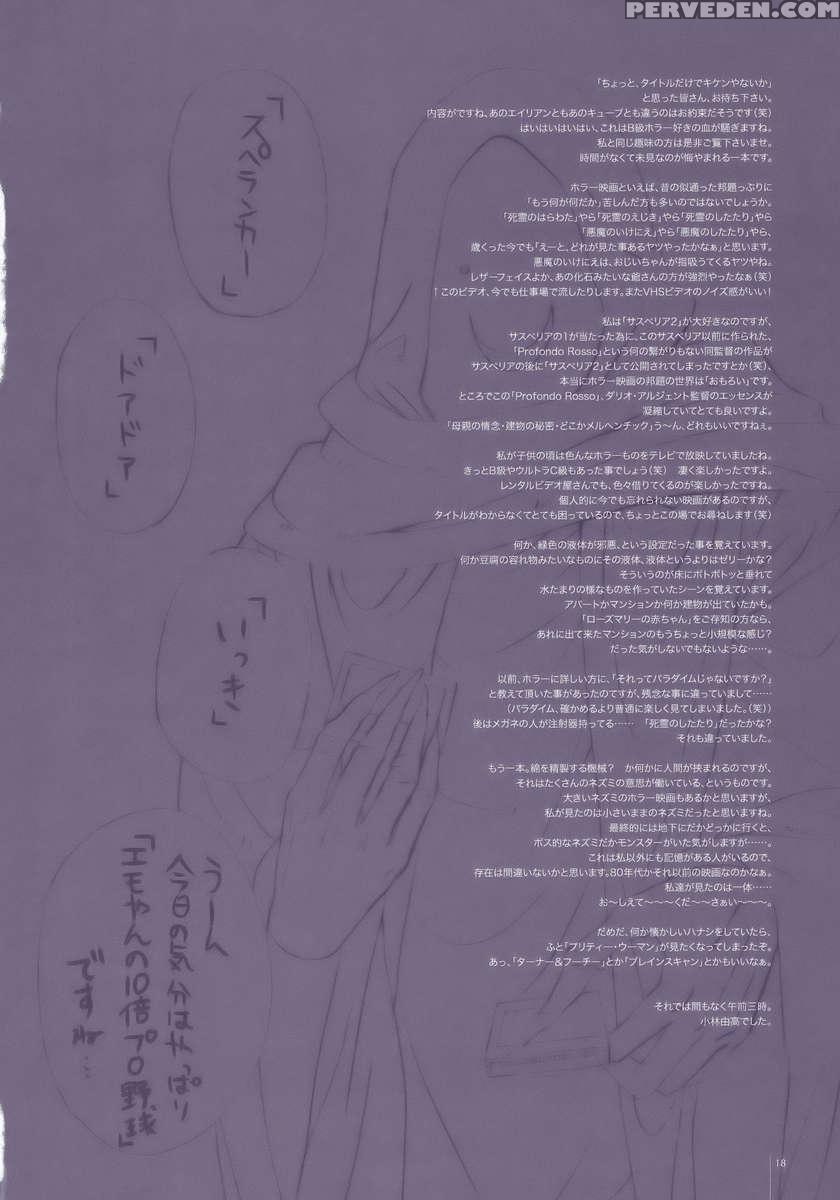 PERVEDEN.COM
「ちょっと、タイトルだけでキケンやないか」
と思った皆さん、お待ち下さい。
内容がですね、あのエイリアンともあのキューブとも違うのはお約束だそうです(笑)
はいはいはいはい、これはB級ホラー好きの血が騒ぎますね。
私と同じ趣味の方は是非ご覧下さいませ。
時間がなくて未見なのが悔やまれる一本です。
ホラー映画といえば、昔の似通った邦題っぷりに
「もう何が何だか」苦しんだ方も多いのではないでしょうか。
「死霊のはらわた」やら「死霊のえじき」やら「死霊のしたたり」やら
「悪魔のいけにえ」やら「悪魔のしたたり」やら、
歳くった今でも「えーと、どれが見た事あるヤツやったかなぁ」と思います。
悪魔のいけにえは、おじいちゃんが指吸うてくるヤツやね。
レザーフェイスよか、あの化石みたいな爺さんの方が強烈やったなぁ(笑)
↑このビデオ、今でも仕事場で流したりします。またVHSビデオのノイズ感がいい!
私は「サスペリア2」が大好きなのですが、
サスペリアの1が当たった為に、このサスペリア以前に作られた、
「Profondo Rosso」という何の繋がりもない同監督の作品が
サスペリアの後に「サスペリア2」として公開されてしまったですとか(笑)、
本当にホラー映画の邦題の世界は「おもろい」です。
ところでこの「Profondo Rosso」、ダリオ・アルジェント監督のエッセンスが
凝縮していてとても良いですよ。
「母親の情念・建物の秘密・どこかメルヘンチック」う〜ん、どれもいいですねぇ。
私が子供の頃は色んなホラーものをテレビで放映していましたね。
きっとB級やウルトラC級もあった事でしょう(笑) 凄く楽しかったですよ。
レンタルビデオ屋さんでも、色々借りてくるのが楽しかったですね。
個人的に今でも忘れられない映画があるのですが、
タイトルがわからなくてとても困っているので、ちょっとこの場でお尋ねします(笑)
何か、緑色の液体が邪悪、という設定だった事を覚えています。
何か豆腐の容れ物みたいなものにその液体、液体というよりはゼリーかな?
そういうのが床にボトボトッと垂れて
水たまりの様なものを作っていたシーンを覚えています。
アパートかマンションか何か建物が出ていたかも。
「ローズマリーの赤ちゃん」をご存知の方なら、
あれに出て来たマンションのもうちょっと小規模な感じ?
だった気がしないでもないような……。
以前、ホラーに詳しい方に、「それってパラダイムじゃないですか?」
と教えて頂いた事があったのですが、残念な事に違っていまして……
(パラダイム、確かめるより普通に楽しく見てしまいました。(笑))
後はメガネの人が注射器持ってる…… 「死霊のしたたり」だったかな?
それも違っていました。
もう一本。綿を精製する機械? か何かに人間が挟まれるのですが、
それはたくさんのネズミの意思が働いている、というものです。
大きいネズミのホラー映画もあるかと思いますが、
私が見たのは小さいままのネズミだったと思いますね。
最終的には地下にだかどっかに行くと、
ボス的なネズミだかモンスターがいた気がしますが……。
これは私以外にも記憶がある人がいるので、
存在は間違いないかと思います。80年代かそれ以前の映画なのかなぁ。
私達が見たのは一体……
お〜しえて〜〜〜くだ〜〜さぁい〜〜〜。
だめだ、何か懐かしいハナシをしていたら、
ふと「プリティー・ウーマン」が見たくなってしまったぞ。
あっ、「ターナー&フーチー」とか「ブレインスキャン」とかもいいなぁ。
それでは間もなく午前三時。
小林由高でした。
「スペランカー」
「ドアドア」
「いっき」
うーん
今日の気分はやっぱり
「エモやんの10倍プロ野球」
ですね…
18